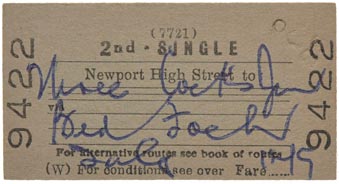 (7721)
2nd - SINGLE
9422
Newport High Street to
Three Cocks Jn
via
Bed
For alternative routes see book of routes
(W) For conditions see over Fare
9422